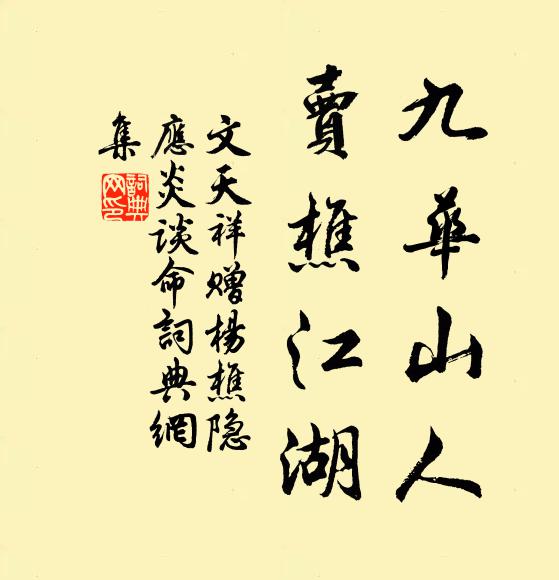 九華山人
賣樵江湖
文天祥贈楊樵隐
應炎談命詞典網
集
詞典
网印